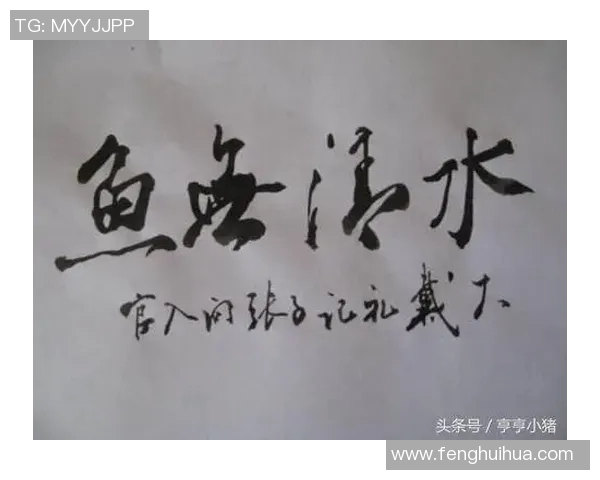 TG: MYYJJPP
水清無鱼
大戴礼记子张问入官
头条号 / 亨亨小猪
www.fenghuihua.com